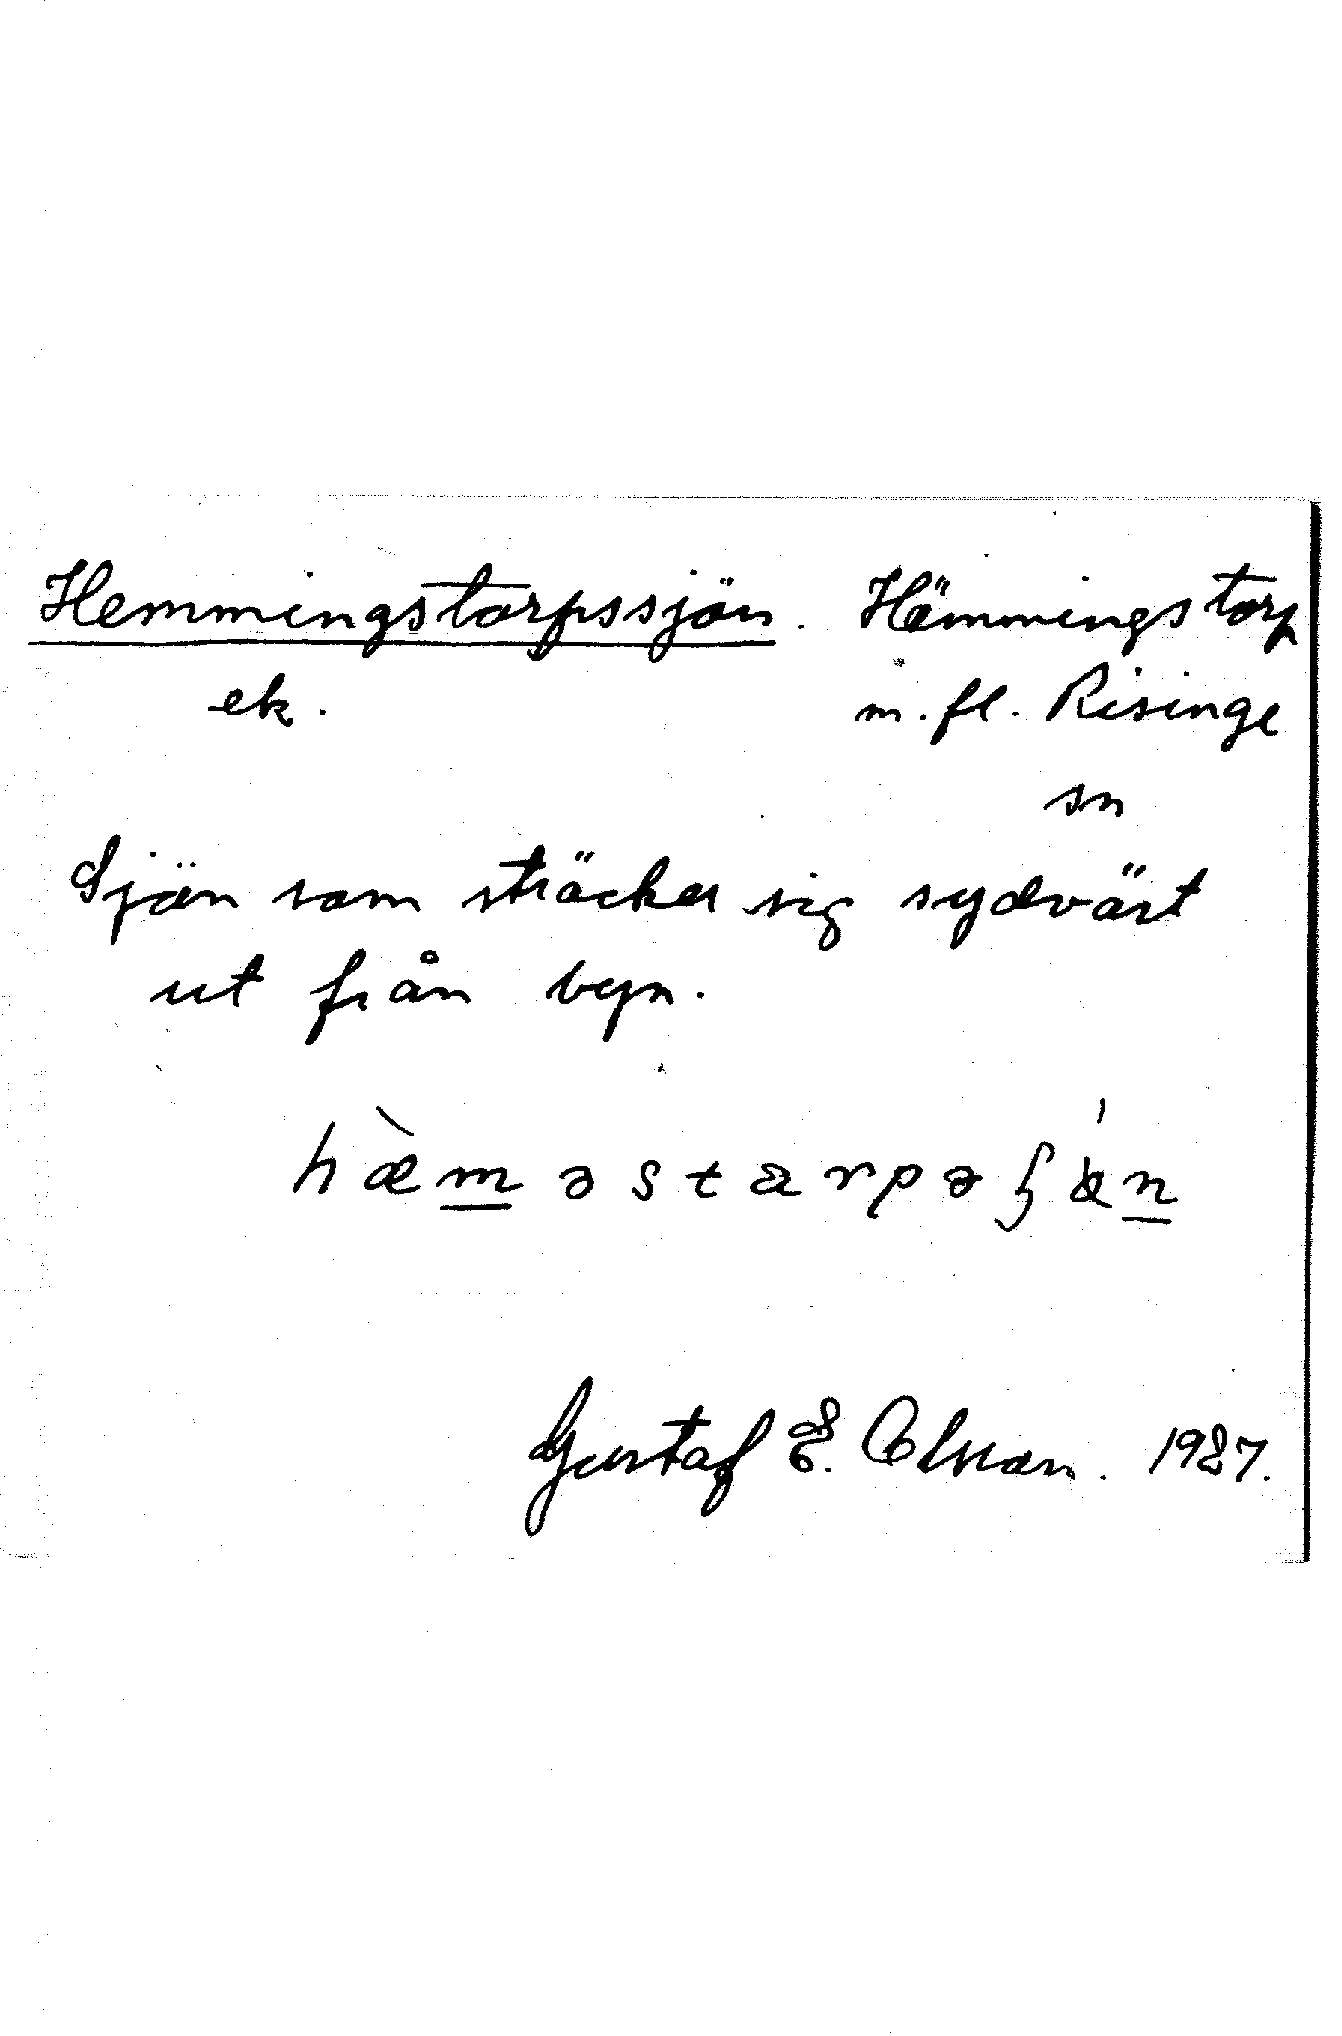 Hemmingstorpssjön. Hämmingstorp
ek. m.fl. Risinge
sn
Sjön som sträcker sig sydväst
ut från byn.
hæ̀m̲əstarpəʃ
Gustaf E. Olsson. 1927.